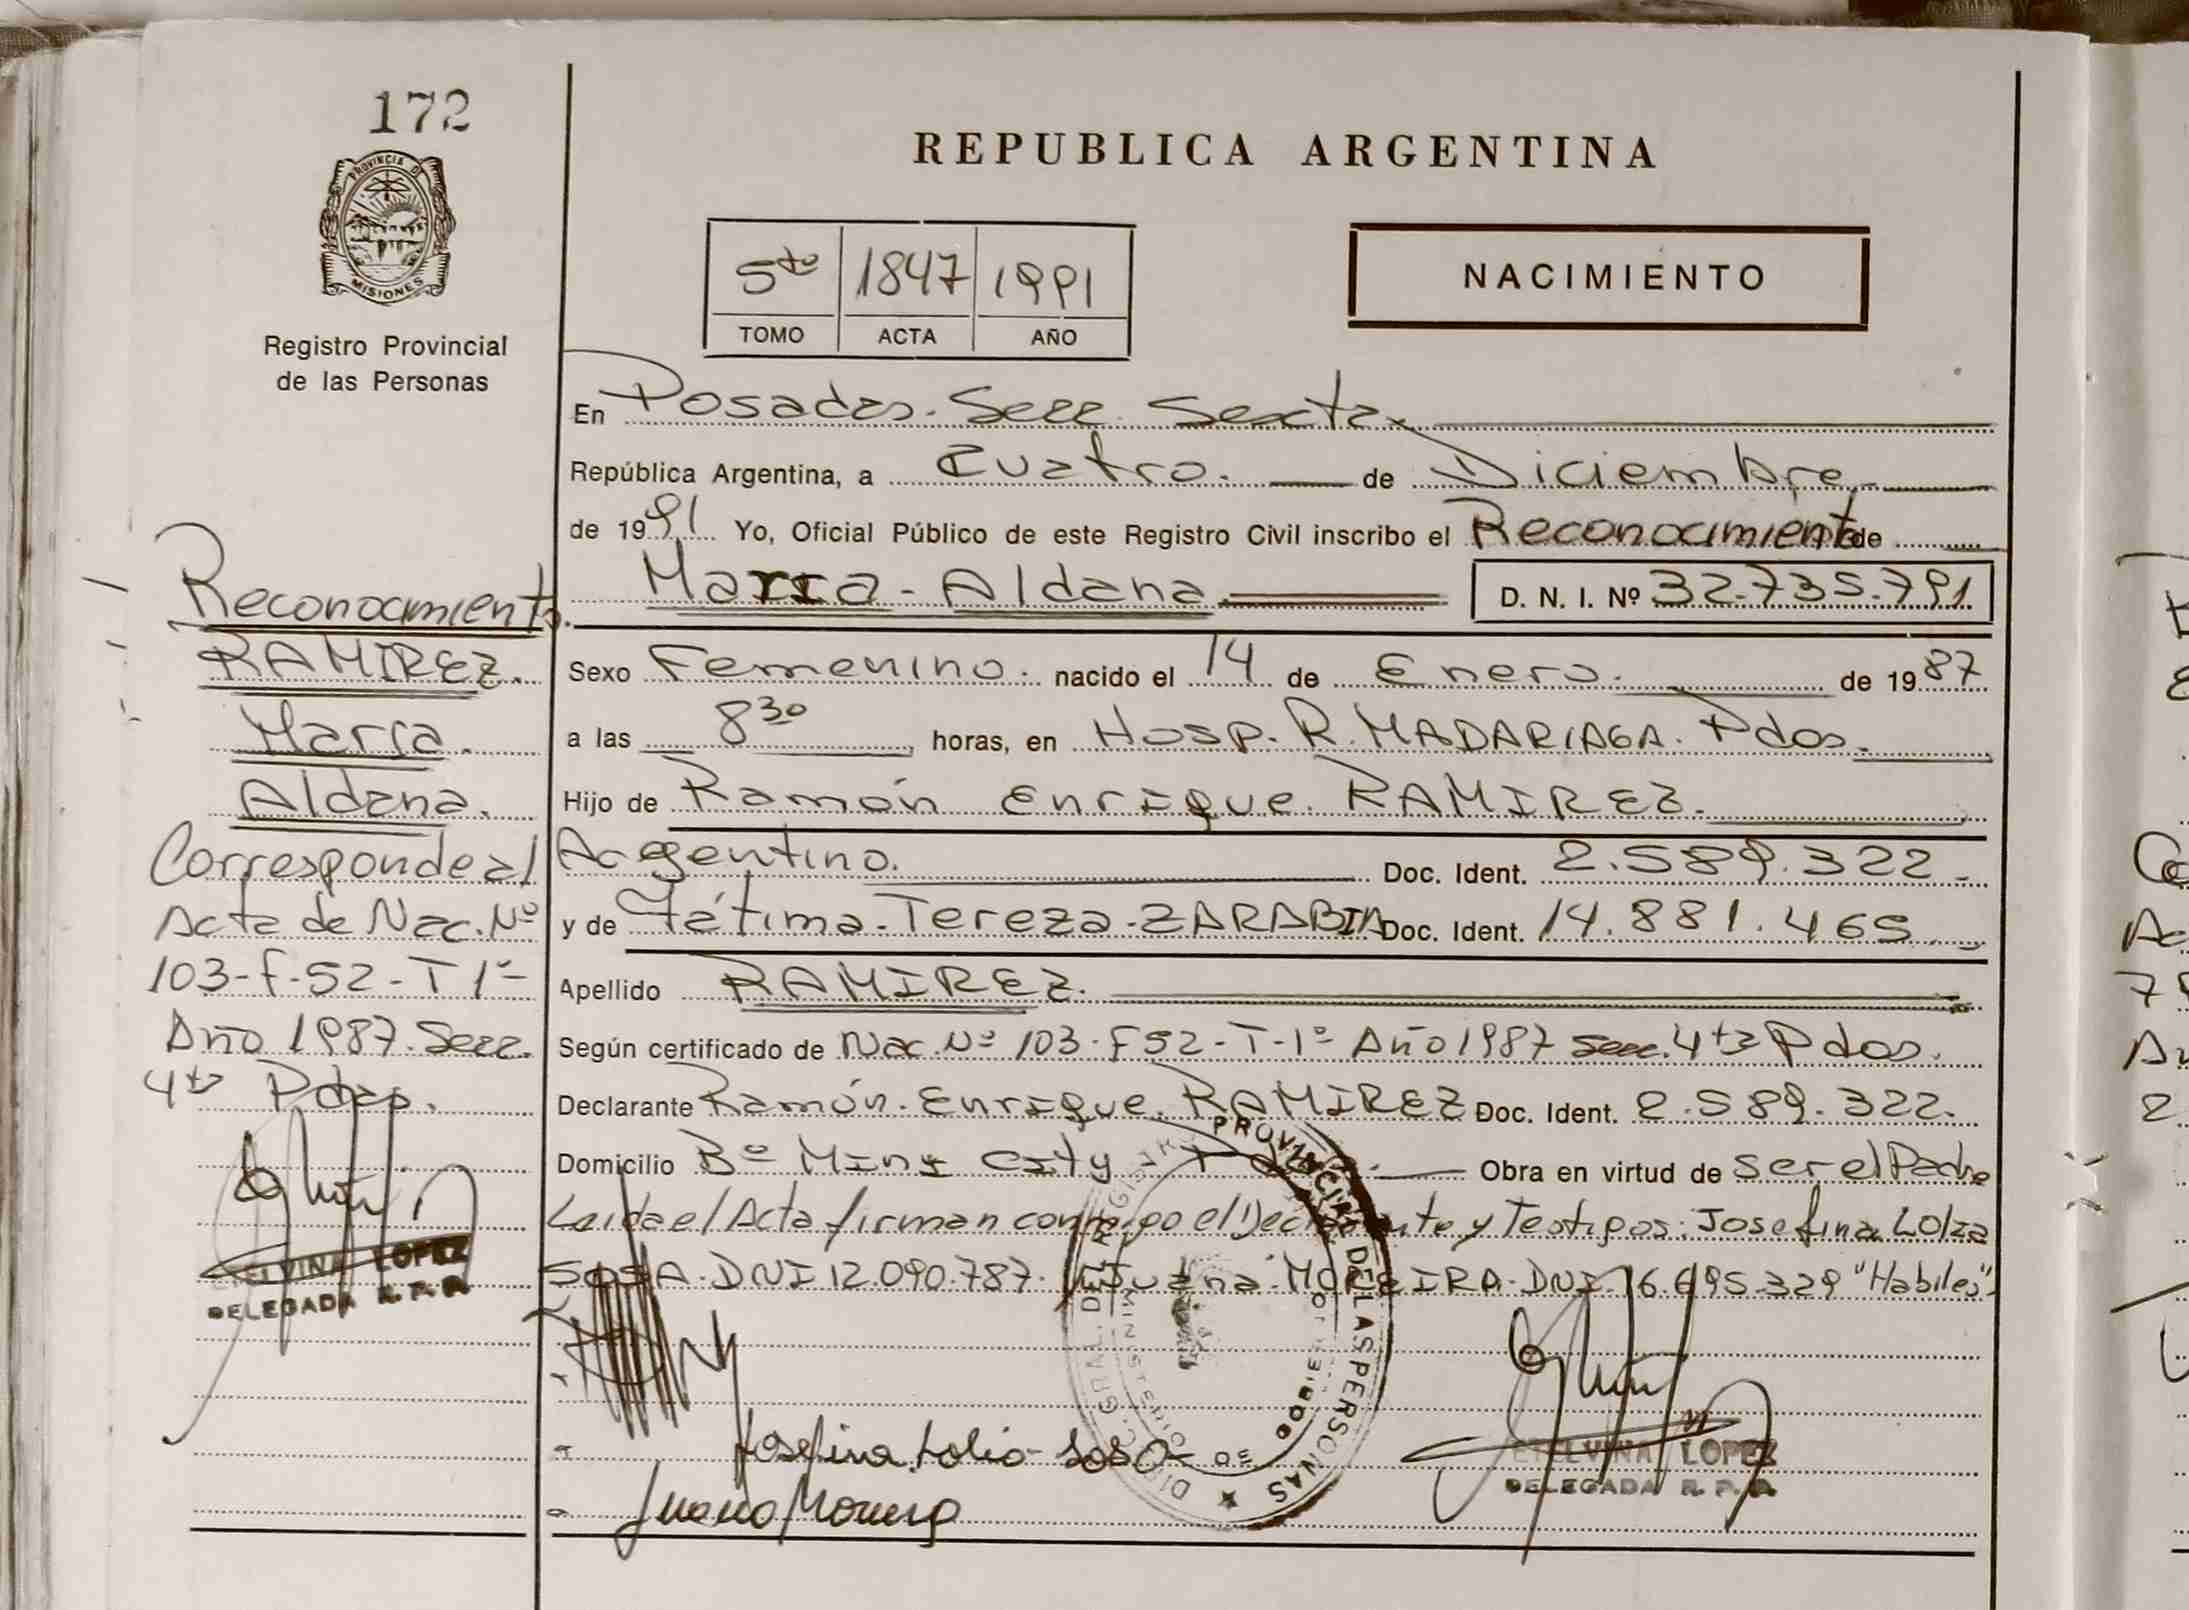 172
PROVINCIA DE
MISIONES
Registro Provincial
de las Personas
REPUBLICA ARGENTINA
5to 1847 1991
TOMO ACTA AÑO
NACIMIENTO
En Posadas. Secc. Sexta.
República Argentina, a Cuatro. de Diciembre
de 1991 Yo, Oficial Público de este Registro Civil inscribo el Reconocimiento de
María - Aldana D. N. I. Nº 32.735.791
Sexo Femenino. nacido el 14 de Enero. de 1987
a las 8 30 horas, en Hosp. R. MADARIAGA. Pdas.
Hijo de Ramón Enrique. RAMIREZ.
Argentino. Doc. Ident. 2.589.322.
y de Fátima. Tereza. ZARABIA Doc. Ident. 14.881.465
Apellido RAMIREZ.
Según certificado de Nac. Nº 103-F52-T-1º Año 1987 Secc. 4ta Pdas.
Declarante Ramón. Enrique. RAMIREZ Doc. Ident. 2.589.322.
Domicilio Bº Mini City - Obra en virtud de ser el Padre
Leida el Acta firman conmigo el Declarante y Testigos: Josefina Lolza
SOSA. DNI 12.090.787. Juana MOREIRA. DNI 16.695.329 "Habiles"
Reconocimiento.
RAMIREZ.
María.
Aldana.
Corresponde al
Acta de Nac. Nº
103-F-52-T1º
Año 1987. Secc.
4ta Pdas.
ETELVINA LOPEZ
DELEGADA R. P. P.
Josefina Sosa
Juana Moreira
DIREC. GRAL. DEL REGISTRO PROVINCIAL DE LAS PERSONAS
MINISTERIO DE GOBIERNO
ETELVINA LOPEZ
DELEGADA R. P. P.